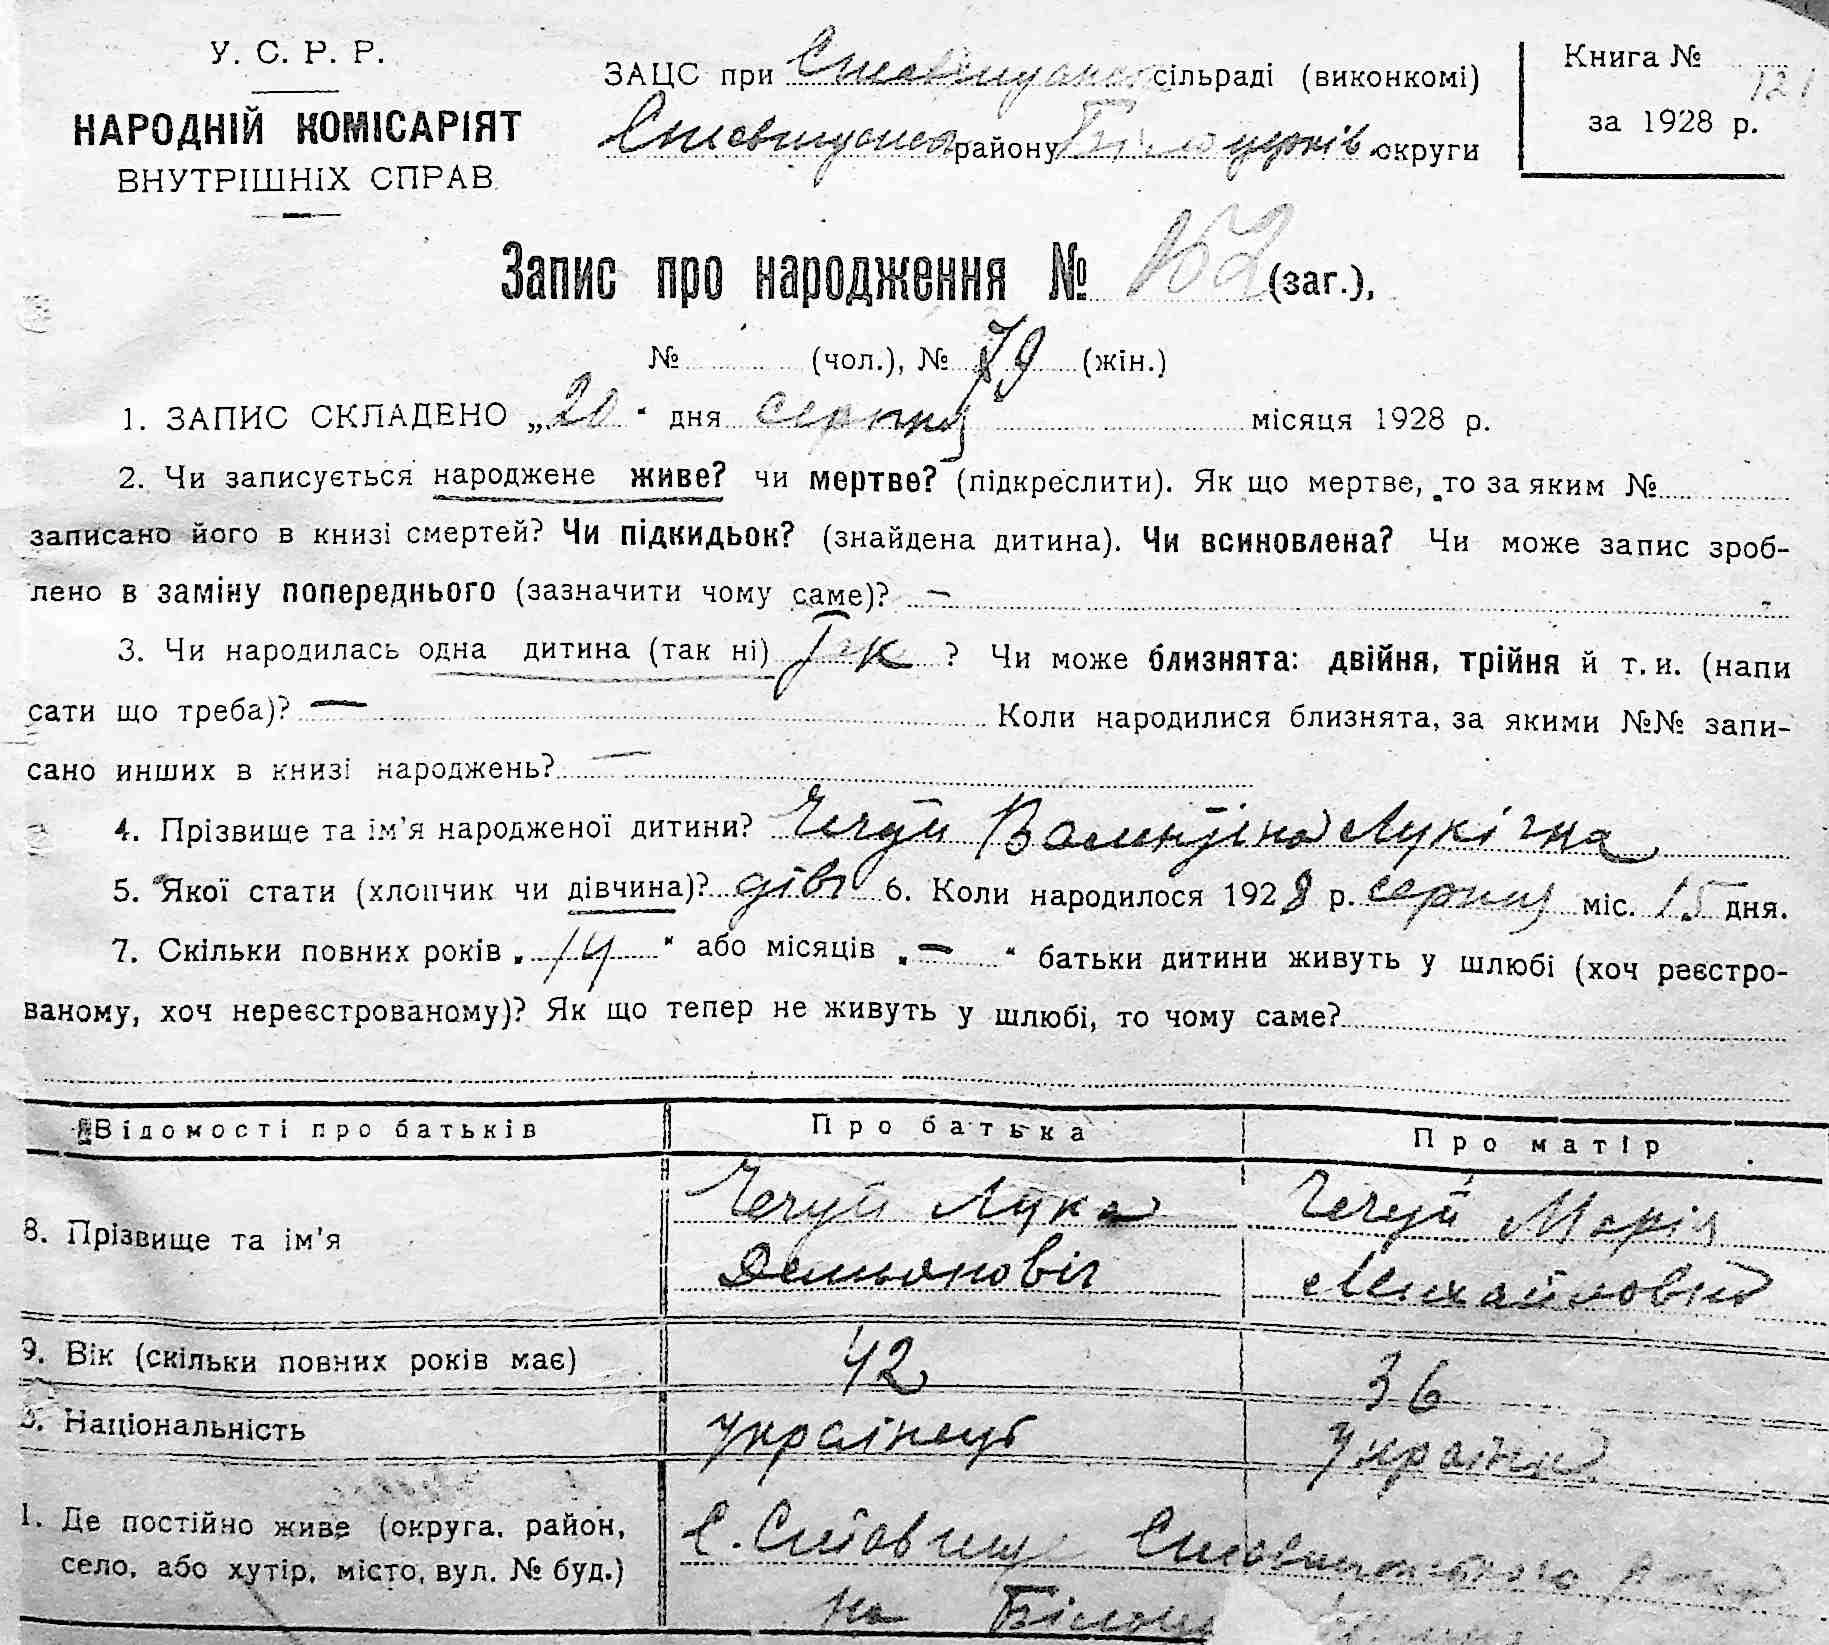 У. С. Р. Р.
НАРОДНІЙ КОМІСАРІЯТ
ВНУТРІШНІХ СПРАВ
ЗАЦС при Ставищанск сільраді (виконкомі)
Ставищанск району Білоцерків. округи
Книга №
121
за 1928 р.
Запис про народження № 152 (заг.),
№ (чол.), № 79 (жін.)
1. ЗАПИС СКЛАДЕНО „20" дня серпня місяця 1928 р.
2. Чи записується народжене живе? чи мертве? (підкреслити). Як що мертве, то за яким №
записано його в книзі смертей? Чи підкидьок? (знайдена дитина). Чи всиновлена? Чи може запис зроб-
лено в заміну попереднього (зазначити чому саме)? —
3. Чи народилась одна дитина (так ні) Так ? Чи може близнята: двійня, трійня й т. и. (напи
сати що треба)? — Коли народилися близнята, за якими №№ запи-
сано инших в книзі народжень? —
4. Прізвище та ім'я народженої дитини? Чечуй Валентіна Лукічна
5. Якої стати (хлопчик чи дівчина)? дівч 6. Коли народилося 1928 р. серпня міс. 15 дня.
7. Скільки повних років „14" або місяців „—" батьки дитини живуть у шлюбі (хоч реєстро-
ваному, хоч нереєстрованому)? Як що тепер не живуть у шлюбі, то чому саме?
Відомості про батьків Про батька Про матір
8. Прізвище та ім'я Чечуй Лука Чечуй Марія
Демьянович Михайловна
9. Вік (скільки повних років має) 42 36
0. Національність українець україн
1. Де постійно живе (округа, район, С. Ставище Ставищанского
село, або хутір, місто, вул. № буд.)
на Білоц